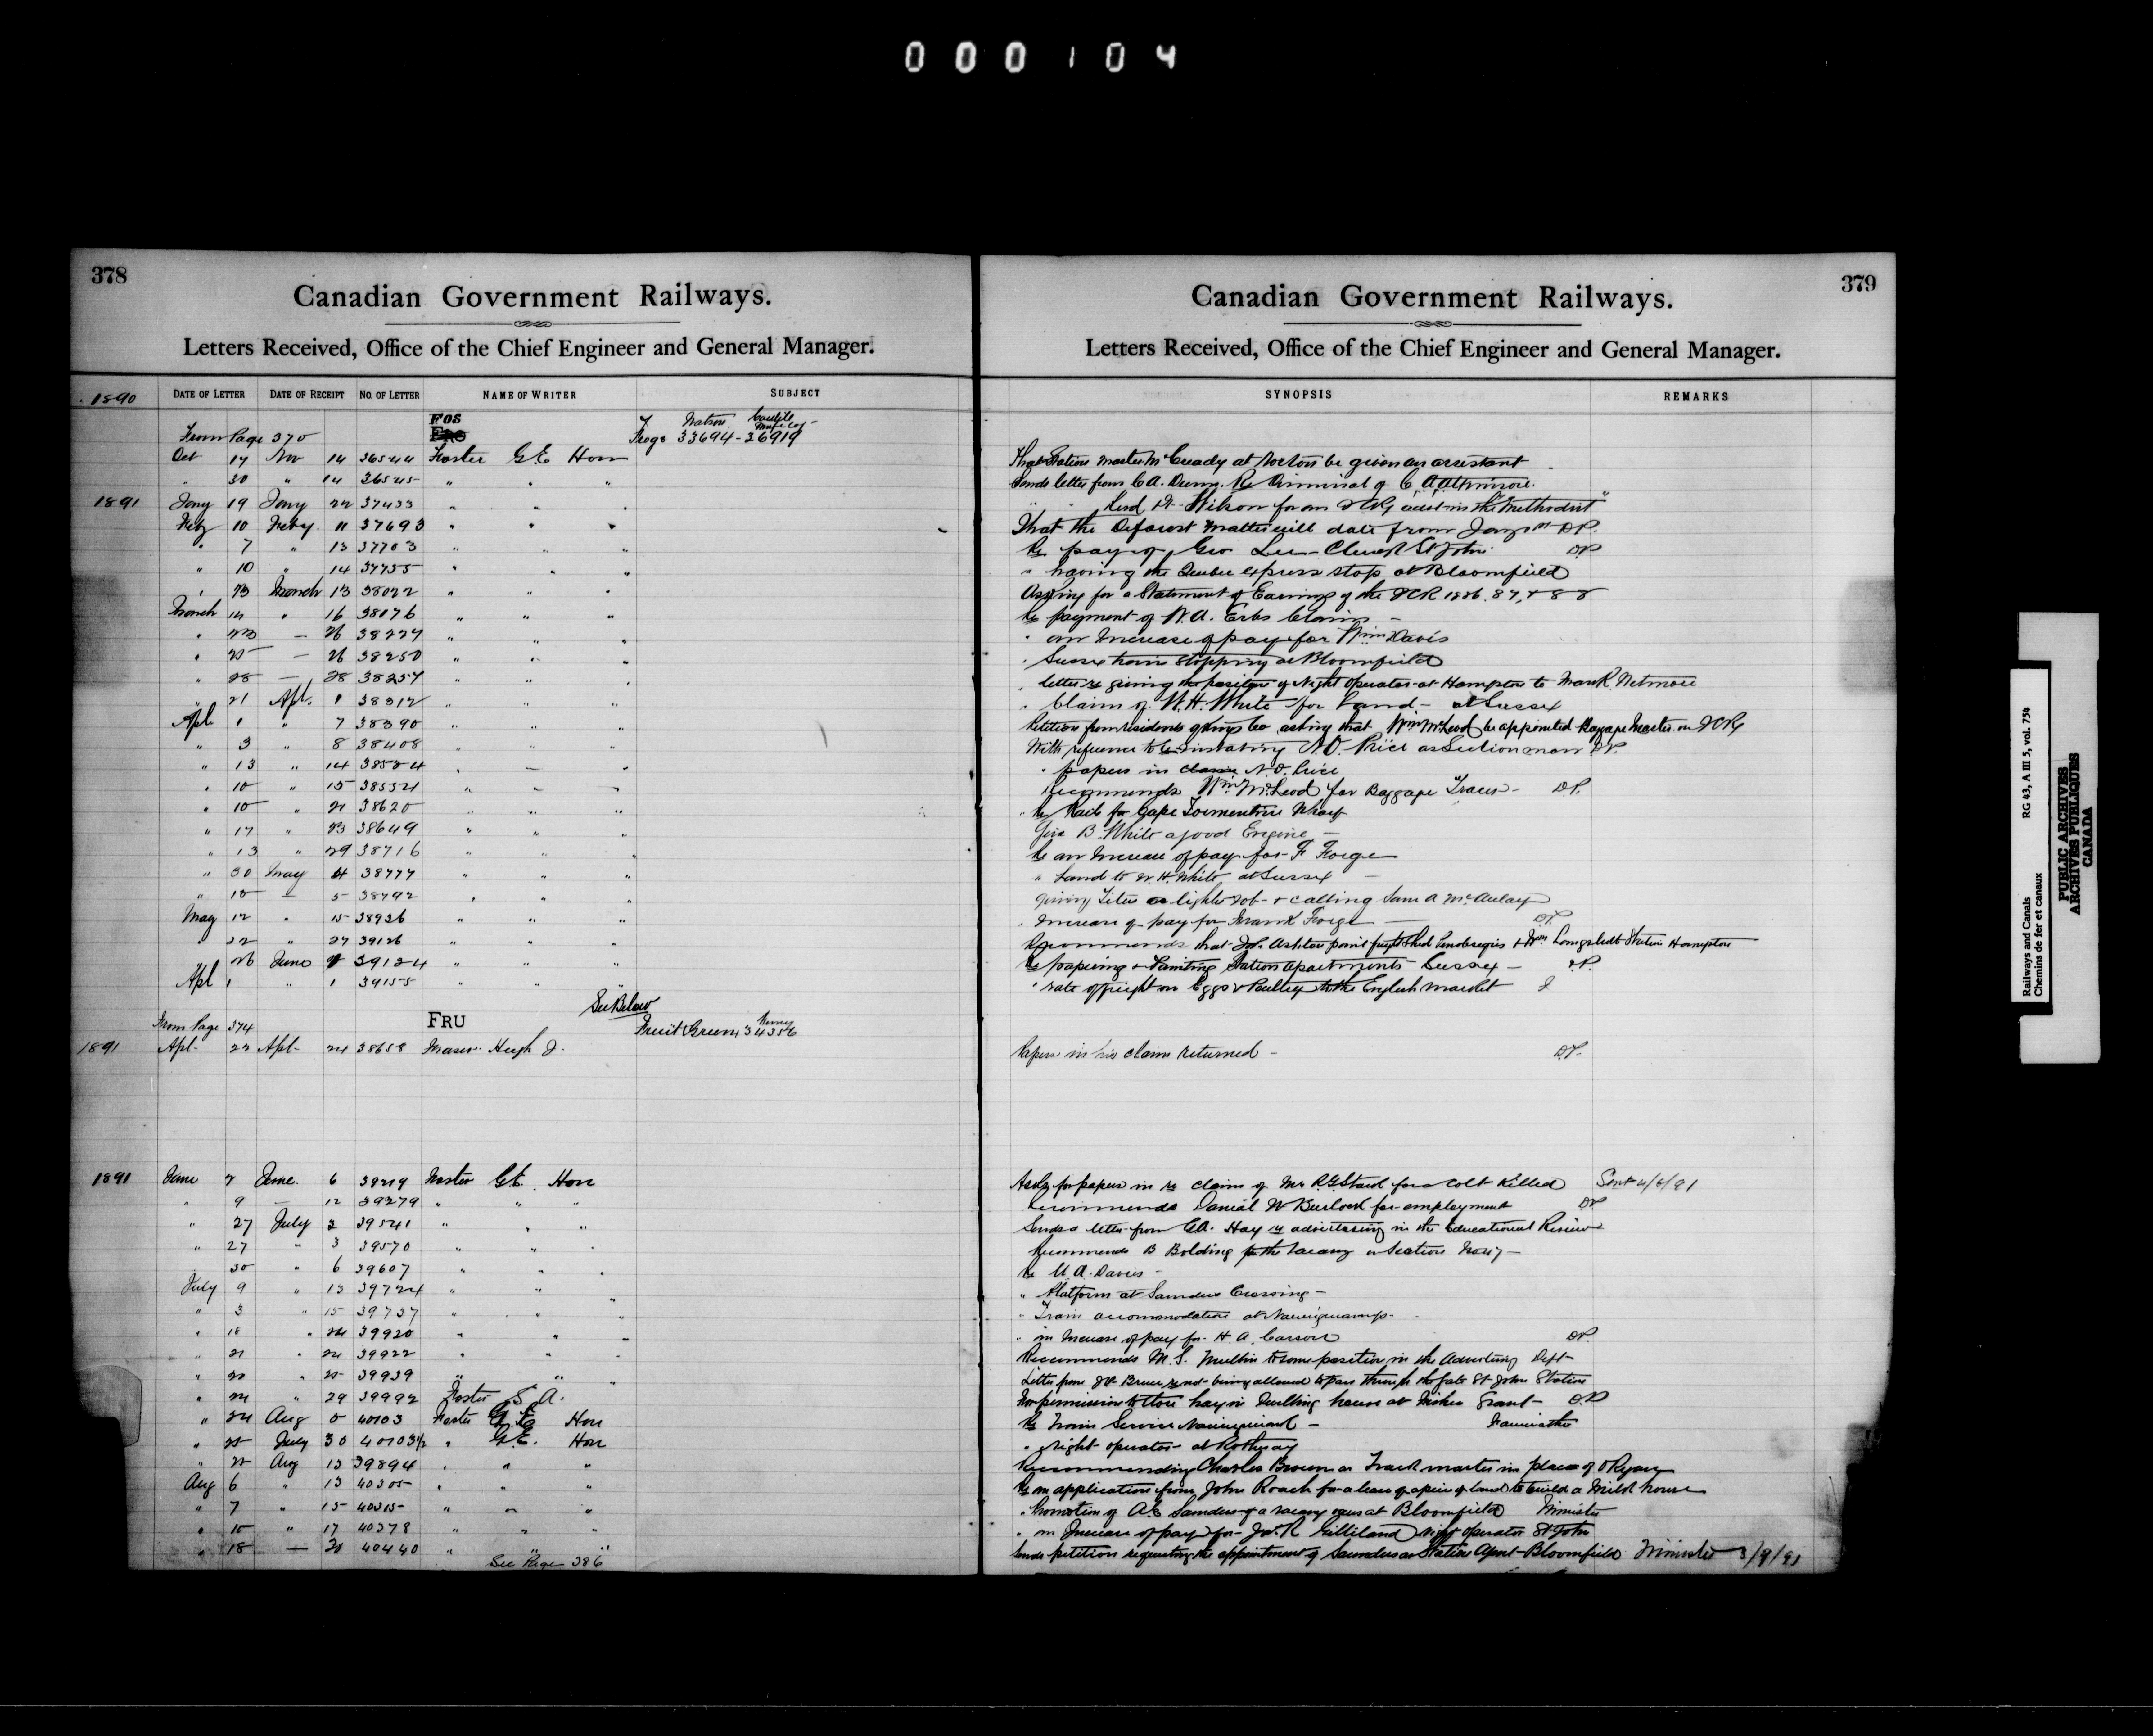 000104
378
Canadian Government Railways.
Letters Received, Office of the Chief Engineer and General Manager.
1890 DATE OF LETTER DATE OF RECEIPT NO. OF LETTER NAME OF WRITER SUBJECT
FOS
From Page 370 FRO Frogs 33694-36919
Oct 14 Nov 14 36544 Foster G E Hon
" 30 " 14 36545 " " "
1891 Jany 19 Jany 22 37433 " " "
Feby 10 Feby. 11 37693 " " "
" 7 " 13 37703 " " "
" 10 " 14 37755 " " "
" 13 March 13 38022 " " "
March 14 " 16 38076 " " "
" 23 — 26 38227 " " "
" 25 — 26 38250 " " "
" 28 — 28 38257 " " "
" 21 Apl. 1 38312 " " "
Apl 1 " 7 38390 " " "
" 3 " 8 38408 " " "
" 13 " 14 38524 " — "
" 10 " 15 38532 " " "
" 10 " 21 38620 " " "
" 17 " 23 38649 " " "
" 13 " 29 38716 " " "
" 30 May 4 38777 " " "
" 10 — 5 38792 " " "
May 12 " 15 38926 " " "
" 22 " 27 39126 " " "
26 June 1 39124 " " "
Apl 1 " 1 39155 " " "
See Below
From Page 374 FRU Fruit Green 34356
1891 Apl- 22 Apl- 24 38658 Fraser Hugh J.
1891 June 2 June 6 39219 Foster G E. Hon
" 9 — 12 39279 " " "
" 27 July 2 39541 " " "
" 27 " 3 39570 " " "
30 " 6 39607 " " "
July 9 " 13 39724 " " "
" 3 " 15 39737 " " "
" 18 " 24 39920 " " "
" 21 " 24 39922 " " "
" 20 " 25 39939 " " "
" 24 " 29 39992 Foster S. A.
" 24 Aug 5 40103 Foster G. E. Hon
" 25 July 30 40103½ " G.E. Hon
" 22 Aug 13 39894 " " "
Aug 6 " 13 40305 " " "
" 7 " 15 40315 " " "
" 10 " 17 40378 " " "
" 18 — 20 40440 " " "
See Page 386
379
Canadian Government Railways.
Letters Received, Office of the Chief Engineer and General Manager.
SYNOPSIS REMARKS
That Station Master McCready at Norton be given an assistant
Sends letter from C A. Re Dismissal of C A Atkinson.
Wilson for an ICRy advt in the "Methodist"
That the Deforest matter will date from Jany 1st D.P.
Re pay of Geo Lee - Clerk St John D.P
" having the Quebec express stop at Bloomfield
Asking for a Statement of Earnings of the ICR 1886, 87, & 88
Re payment of W. A. Erbs Claim -
" an Increase of pay for Wm Davis
" Sussex train stopping at Bloomfield
" letter re giving the position of Night Operator at Hampton to Mark Wetmore
" Claim of W. H. White for Land - at Sussex
Petition from residents of Kings Co asking that Wm McLeod be appointed Baggage Master on ICRy
With reference to reinstating N. O. Price as Section man D.P.
" papers in claim N. O. Price
Recommends Wm McLeod for Baggage Train - D.P.
" Re Rails for Cape Tormentine Wharf
Give B. White a good Engine -
Re an Increase of pay for F Forge
" Land to W. H. White at Sussex -
giving a lighter job + calling Sam A McAulay
" Increase of pay for Frank Forge — D.P.
Recommends that Jos. Ashton paint freight shed & Wm Langstroth Station Hampton
Re papering & Painting Station apartments Sussex - D.P.
" rate of freight on Eggs & Poultry to the English market
Papers in his claim returned - D.P.
Asks for papers in re claim of Mr R G Stard for a Colt Killed Sent 4/6/91
Recommends Daniel W Burlock for employment D.P
Sends a letter from G.A. Hay re advertising in the Educational Review
Recommends B Bolding for the Vacancy on Section
Re U. A. Davis -
" Platform at Saunders Crossing -
" Train accommodation at Nauwigewauk -
" an Increase of pay for H. A. Carson D.P.
Recommends M. S. Mullin to some position in the Advertising Dept
Letter from J H Bruce re not being allowed to pass through the Gate St John Station
For permission to store hay in dwelling house at Fisher Grant - D.P
Re Train Service Nauwigewauk -
" Night operator at Rothesay
Recommending Charles Brown as Track master in place of O Ryan
Re an application from John Roach for a lease of a piece of land to build a Milk house
" Promotion of A.E Saunders if a vacancy occurs at Bloomfield Minister
" an Increase of pay for Jas. R Gilliland night operator St John
Sends petition requesting the appointment of Saunders as Station Agent - Bloomfield Minister 3/9/91
Railways and Canals
Chemins de fer et canaux
RG 43, A III 5, vol. 754
PUBLIC ARCHIVES
ARCHIVES PUBLIQUES
CANADA